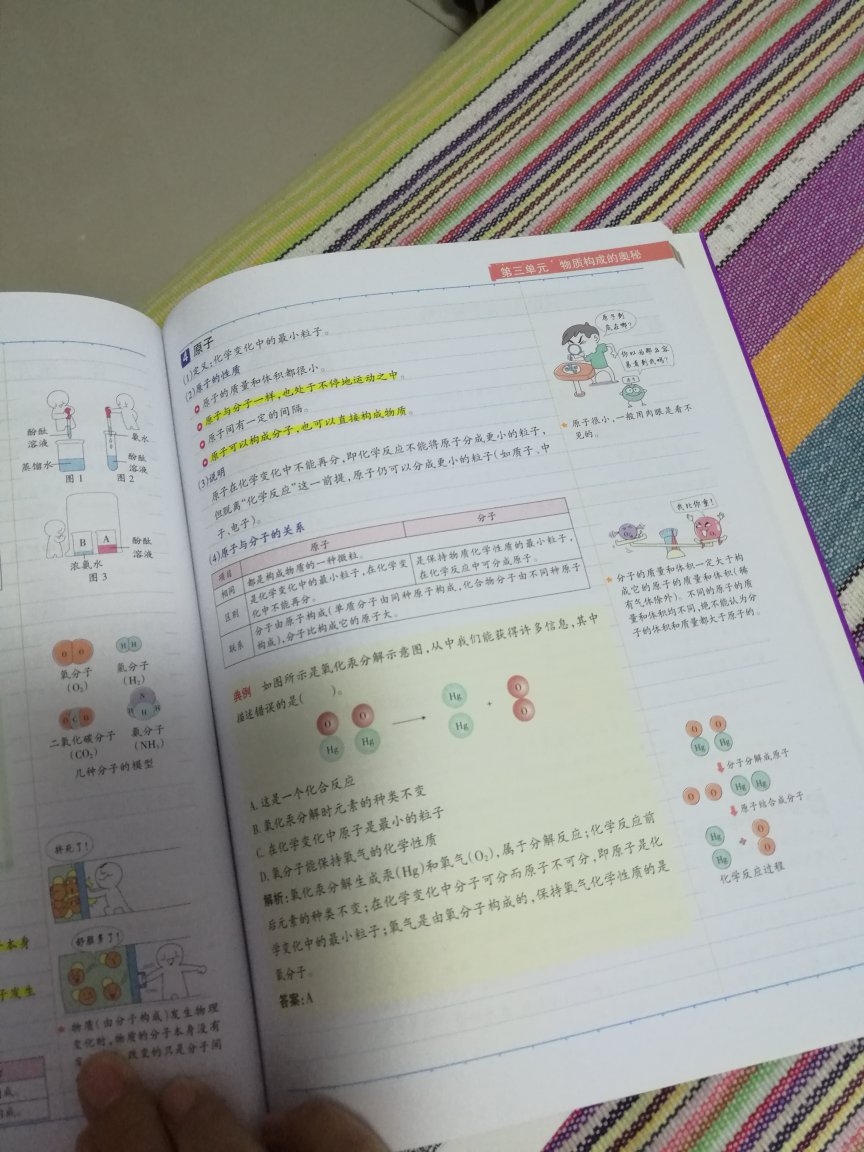 酚酞
溶液
蒸馏水
图1
氨水
酚酞
溶液
图2
B
A
酚酞
溶液
浓氨水
图3
O O
氧分子
(O₂)
H H
氢分子
(H₂)
O C O
二氧化碳分子
(CO₂)
N
H H H
氨分子
(NH₃)
几种分子的模型
挤死了!
舒服多了!
本身
子发生
★ 物质(由分子构成)发生物理
变化时,物质的分子本身没有
改变的只是分子间
第三单元 物质构成的奥秘
4 原子
(1)定义:化学变化中的最小粒子。
(2)原子的性质
原子的质量和体积都很小。
原子与分子一样,也处于不停地运动之中。
原子间有一定的间隔。
原子可以构成分子,也可以直接构成物质。
(3)说明
原子在化学变化中不能再分,即化学反应不能得原子分成更小的粒子,
但脱离“化学反应”这一前提,原子仍可以分成更小的粒子(如质子、中
子、电子)。
(4)原子与分子的关系
项目 原子 分子
相同 都是构成物质的一种微粒。
区别 是化学变化中的最小粒子,在化学变
化中不能再分。
是保持物质化学性质的最小粒子,
在化学反应中可分成原子。
联系 分子由原子构成(单质分子由同种原子构成,化合物分子由不同种原子
构成),分子比构成它的原子大。
典例 如图所示是氧化汞分解示意图,从中我们能获得许多信息,其中
描述错误的是( )。
O O Hg Hg
Hg Hg
+
O O
A.这是一个化合反应
B.氧化汞分解时元素的种类不变
C.在化学变化中原子是最小的粒子
D.氧分子能保持氧气的化学性质
解析:氧化汞分解生成汞(Hg)和氧气(O₂),属于分解反应;化学反应前
后元素的种类不变;在化学变化中分子可分而原子不可分,即原子是化
学变化中的最小粒子;氧气是由氧分子构成的,保持氧气化学性质的是
氧分子。
答案:A
原子到
底在哪?
你以为那么容
易看到我吗?
★ 原子很小,一般用肉眼是看不
见的。
我比你重!
★ 分子的质量和体积一定大于构
成它的原子的质量和体积(稀
有气体除外)。不同的原子的质
量和体积均不同,绝不能认为分
子的体积和质量都大于原子的。
O O
Hg Hg
分子分解成原子
O O Hg Hg
原子结合成分子
Hg
Hg
+
O
O
化学反应过程